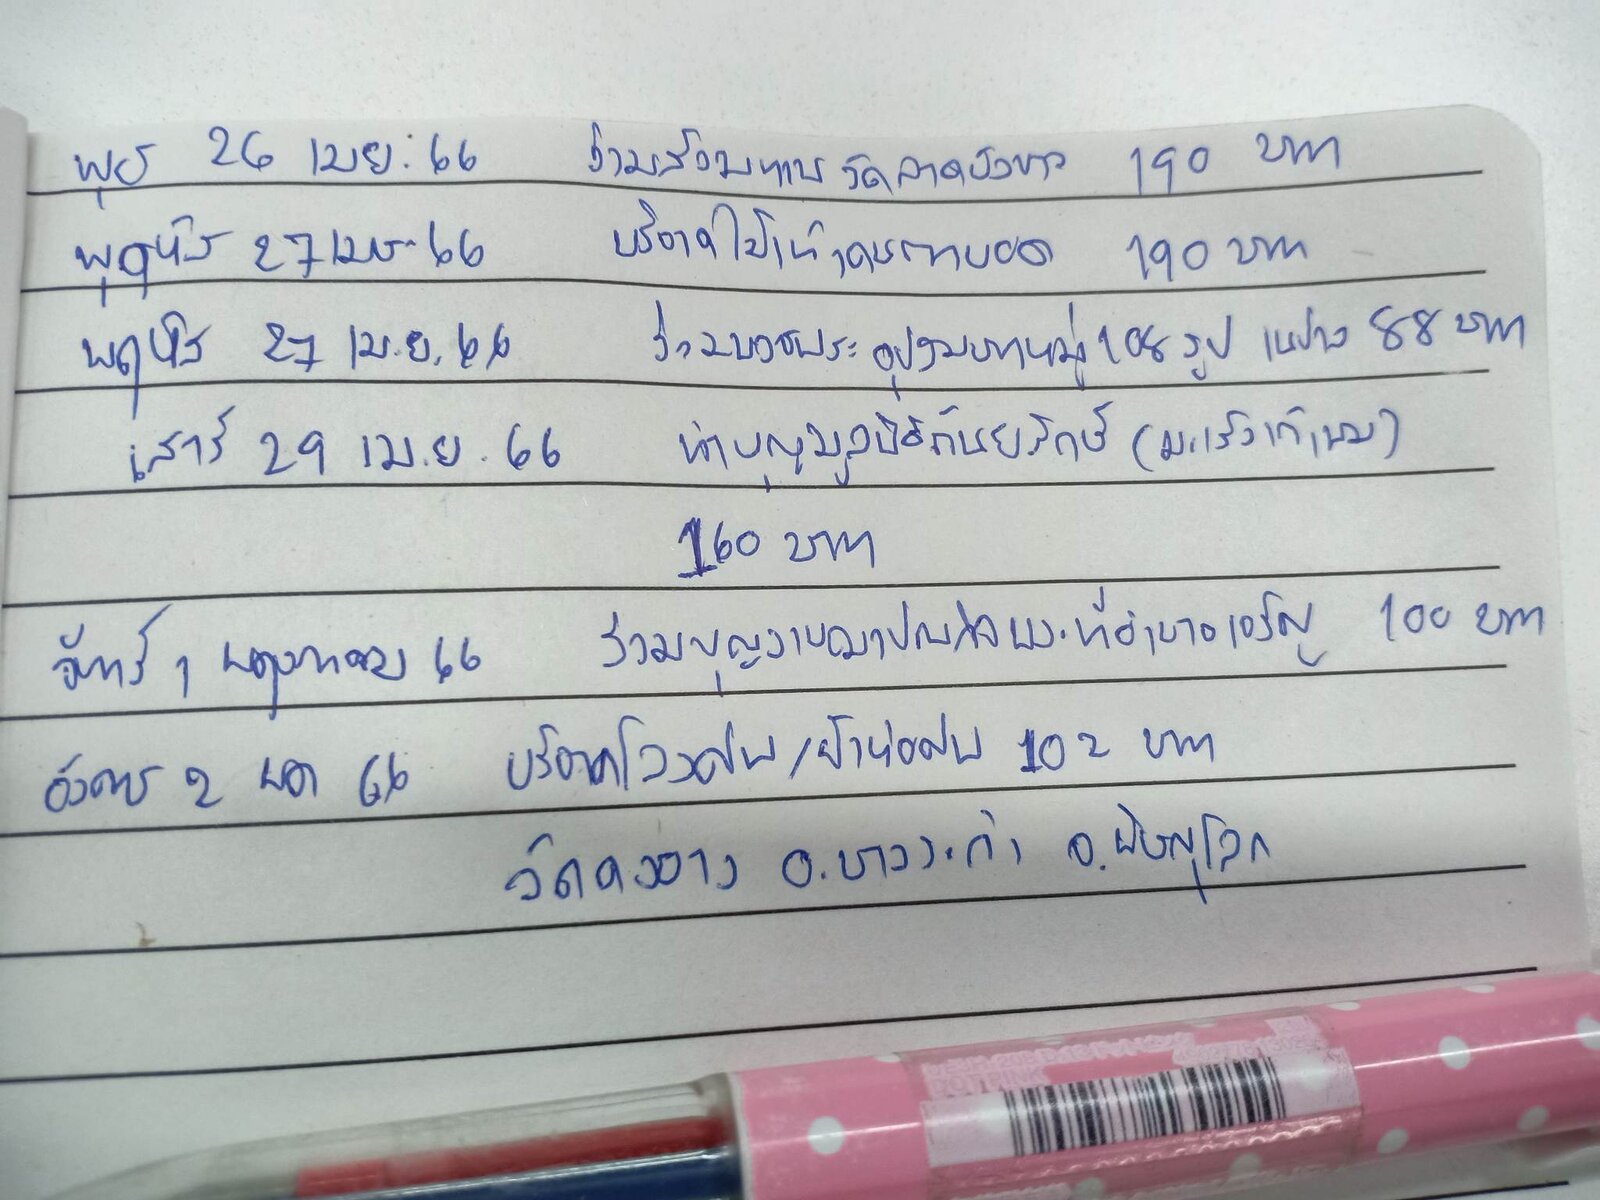 พุธ 26 เมย. 66 ร่วมสังฆทาน วัดลาดบัวขาว 190 บาท
พฤหัส 27 เมย 66 บริจาคไม้เท้าคนตาบอด 190 บาท
พฤหัส 27 เม.ย. 66 ร่วมบวชพระอุปสมบทหมู่ 108 รูป เหล่าง 88 บาท
เสาร์ 29 เม.ย. 66 ทำบุญมูลนิธิกันยารักษ์ (มะเร็งเต้านม)
160 บาท
จันทร์ 1 พฤษภาคม 66 ร่วมบุญงานฌาปนกิจพระที่อำนาจเจริญ 100 บาท
อังคาร 2 พค 66 บริจาคโลงศพ/ผ้าห่อศพ 102 บาท
วัดดงยาง อ.บางระกำ จ.พิษณุโลก